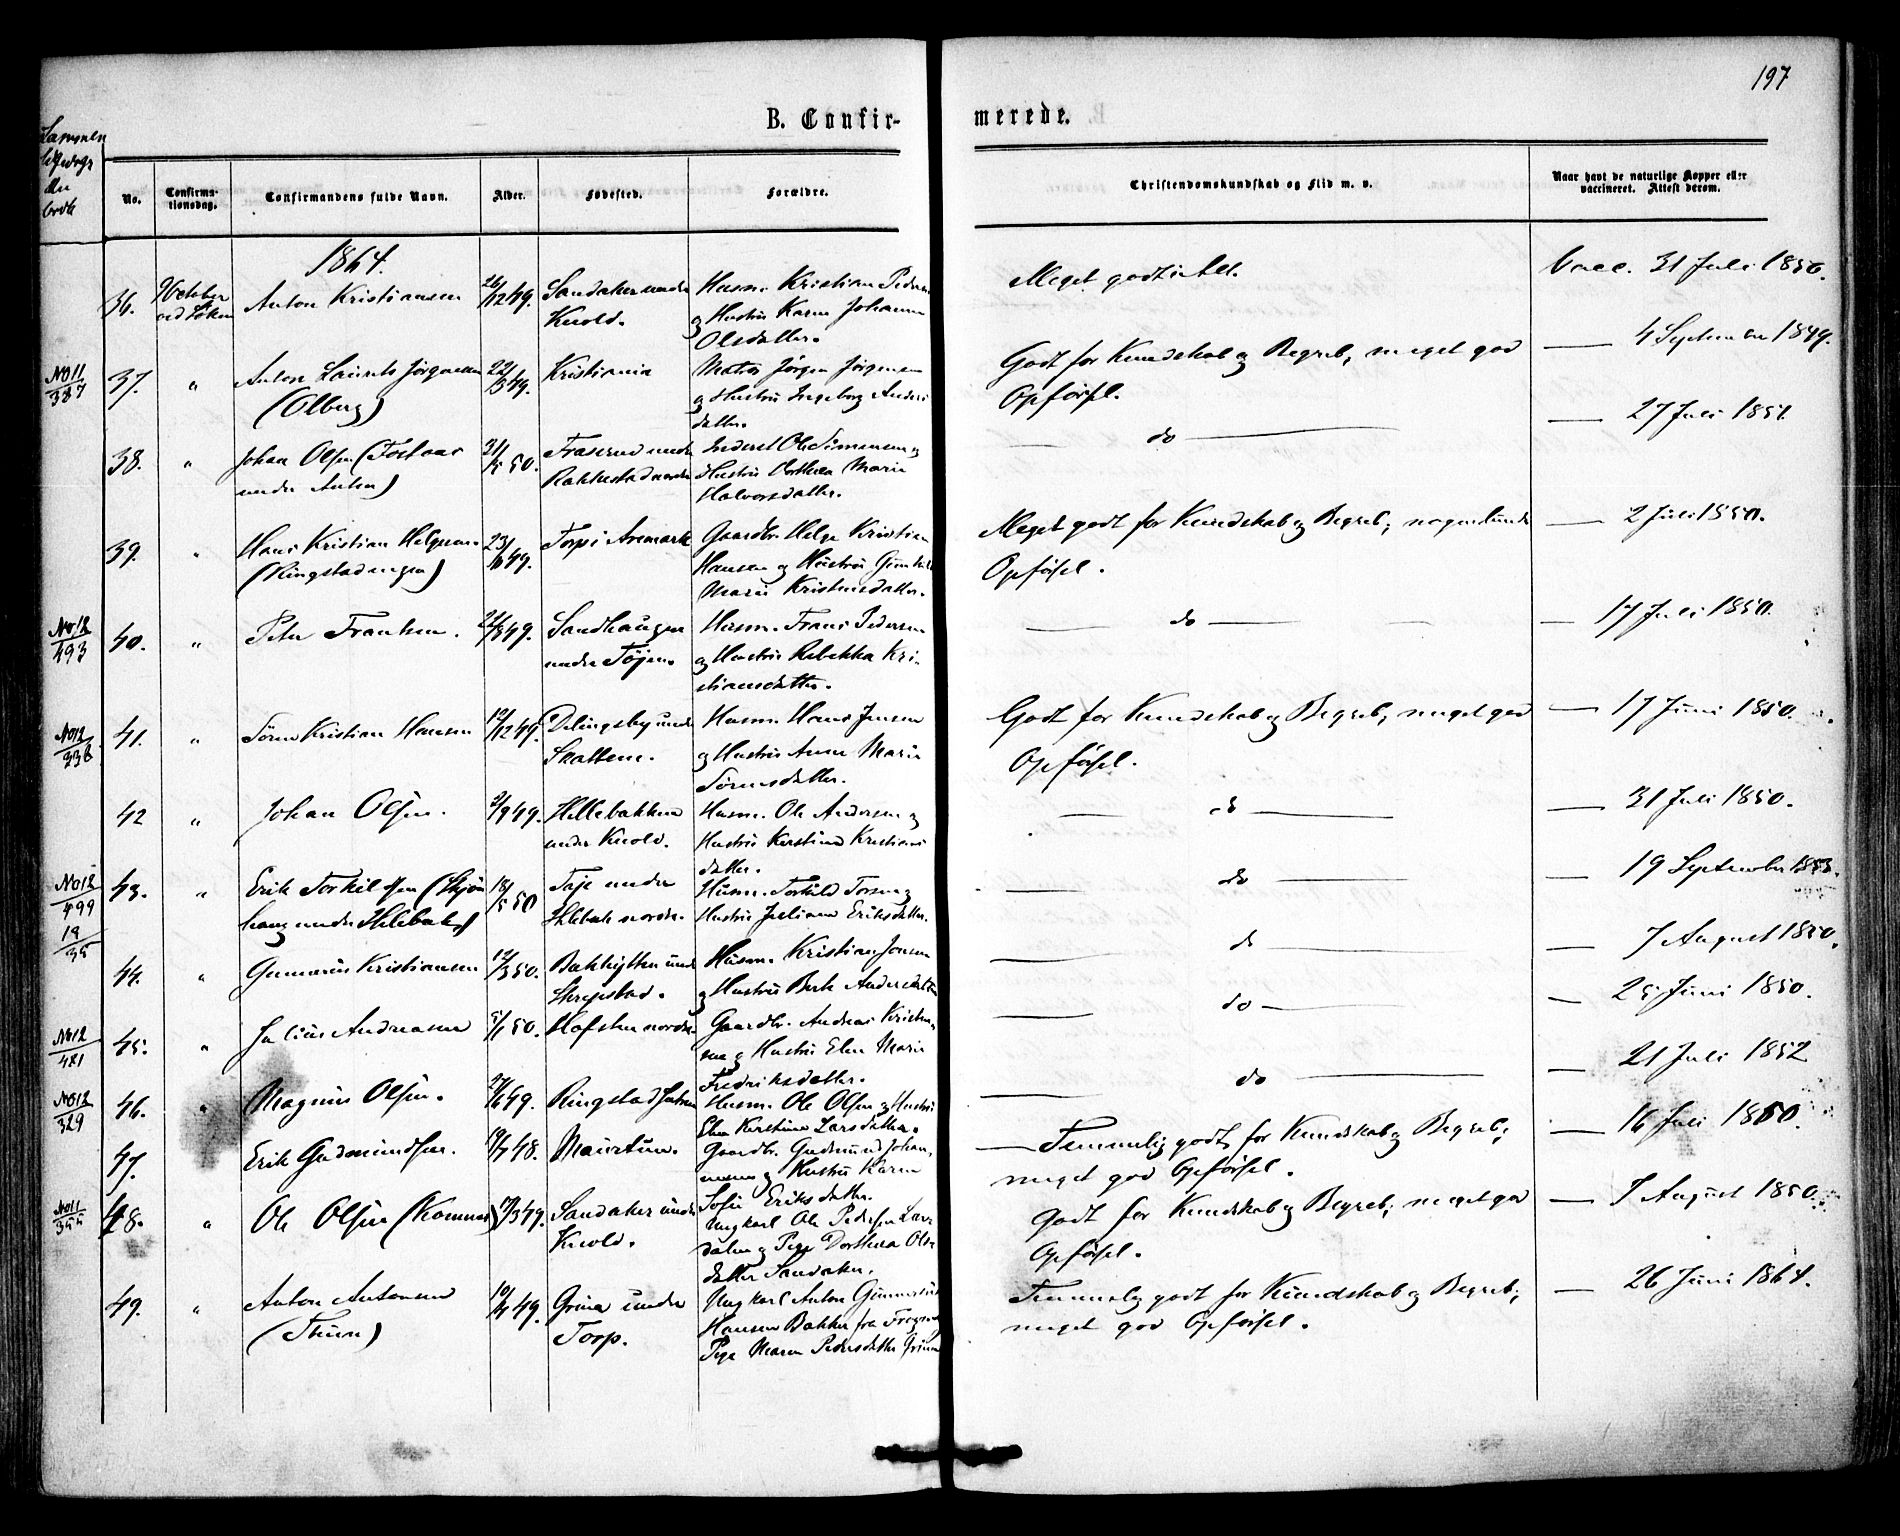 197
B. Confir-
merede.
No.
Confirma-
tionsdag.
Confirmandens fulde Navn.
Alder.
Fødested.
Forældre.
Christendomskundskab og Flid m. v.
Naar havt de naturlige Kopper eller
vaccineret. Attest derom.
1864.
36. 9 October Anton Kristiansen 26/12 49. Sandaker under Husm. Kristian Peders Meget godt i Alt. Vacc. 31 Juli 1850.
Kuold. og Hustru Karen Johanne
Olsdatter.
No 11
387
37. " Anton Laurits Jørgensen 22/3 49. Kristiania Jørgen Jørgensen Godt for Kundskab og Begreb, meget god — 4 September 1849.
(Olberg) og Hustru Ingeborg Anders
datter. Opførsel.
38. " Johan Olsen (Fosland 31/5 50. under Inderst Ole Simensen og — do — — 27 Juli 1851.
under ) Rakkestad nordre Hustru Dorthea Marie
Halvorsdatter.
39. " Hans Kristian Helgesen 23/10 49. Torp i Aremark Gaardbr. Helge Kristian Meget godt for Kundskab og Begreb, nogenlunde — 2 Juli 1850.
(Ringstadengen) Hansen og Hustru Gunhild Opførsel.
Marie Kristensdatter.
No 12
493
40. " Peter Frantsen. /8 49. Sandhaugen Husm. Frans Pedersen — do — — 17 Juli 1850.
under Tøjen. og Hustru Rebekka Kri-
stiansdatter.
No 12
338
41. " Søren Kristian Hansen 12/12 49. Delingsby under Husm. Hans Jensen Godt for Kundskab og Begreb, meget god — 17 Juni 1850.
Skattem. og Hustru Anne Marie Opførsel.
Sørensdatter.
42 " Johan Olsen. 2/9 49. Hellebakken Husm. Ole Andersen og — do — — 31 Juli 1850.
under Kuold. Hustru Kerstine Kristians
datter.
No 12
499
19
35
43. " Erik Torkilsen (Skjøn 18/5 50 Taje under Husm. Torkild Torsen og — do — — 19 September 1853.
haug under Hlebak) Hlebak nordre. Hustru Juliane Eriksdatter.
44. " Gunnerius Kristiansen 12/3 50. Bakhytten under Husm. Kristian Jonsen — do — — 7 August 1850.
og Hustru Berte Andersdatter
No 12
421
45. " Julius Andreasen 5/1 50. Hofsten nordre. Gaardbr. Andreas Kristen — do — — 25 Juni 1850.
sen og Hustru Elen Marie
Fredriksdatter.
No 12
329
46. " Magnus Olsen. 27/6 49. Ringstad Husm. Ole Olsen og Hustru — do — — 21 Juli 1852
Elen Kerstine Larsdatter.
47. Erik Gudmundsen. 48. Gaardbr. Gudmund Johan- Temmelig godt for Kundskab og Begreb; — 16 Juli 1850.
nesen og Hustru Karen meget god Opførsel.
Sofie Eriksdatter.
No 11
355
48. " Ole Olsen (Komnes) /3 49. Sandaker under Ungkarl Ole Pedersen Godt for Kundskab og Begreb, meget god — 7 August 1850.
Kuold. dalen og Pige Dorthea Ols Opførsel.
datter Sandaker.
49. " Anton Antonsen 10/4 49. Grina under Ungkarl Anton Gunnerius Temmelig godt for Kundskab og Begreb; — 26 Juni 1864.
(Thun) Torp. Hansen Bakke fra meget god Opførsel.
Pige Maren Pedersdatter Grina